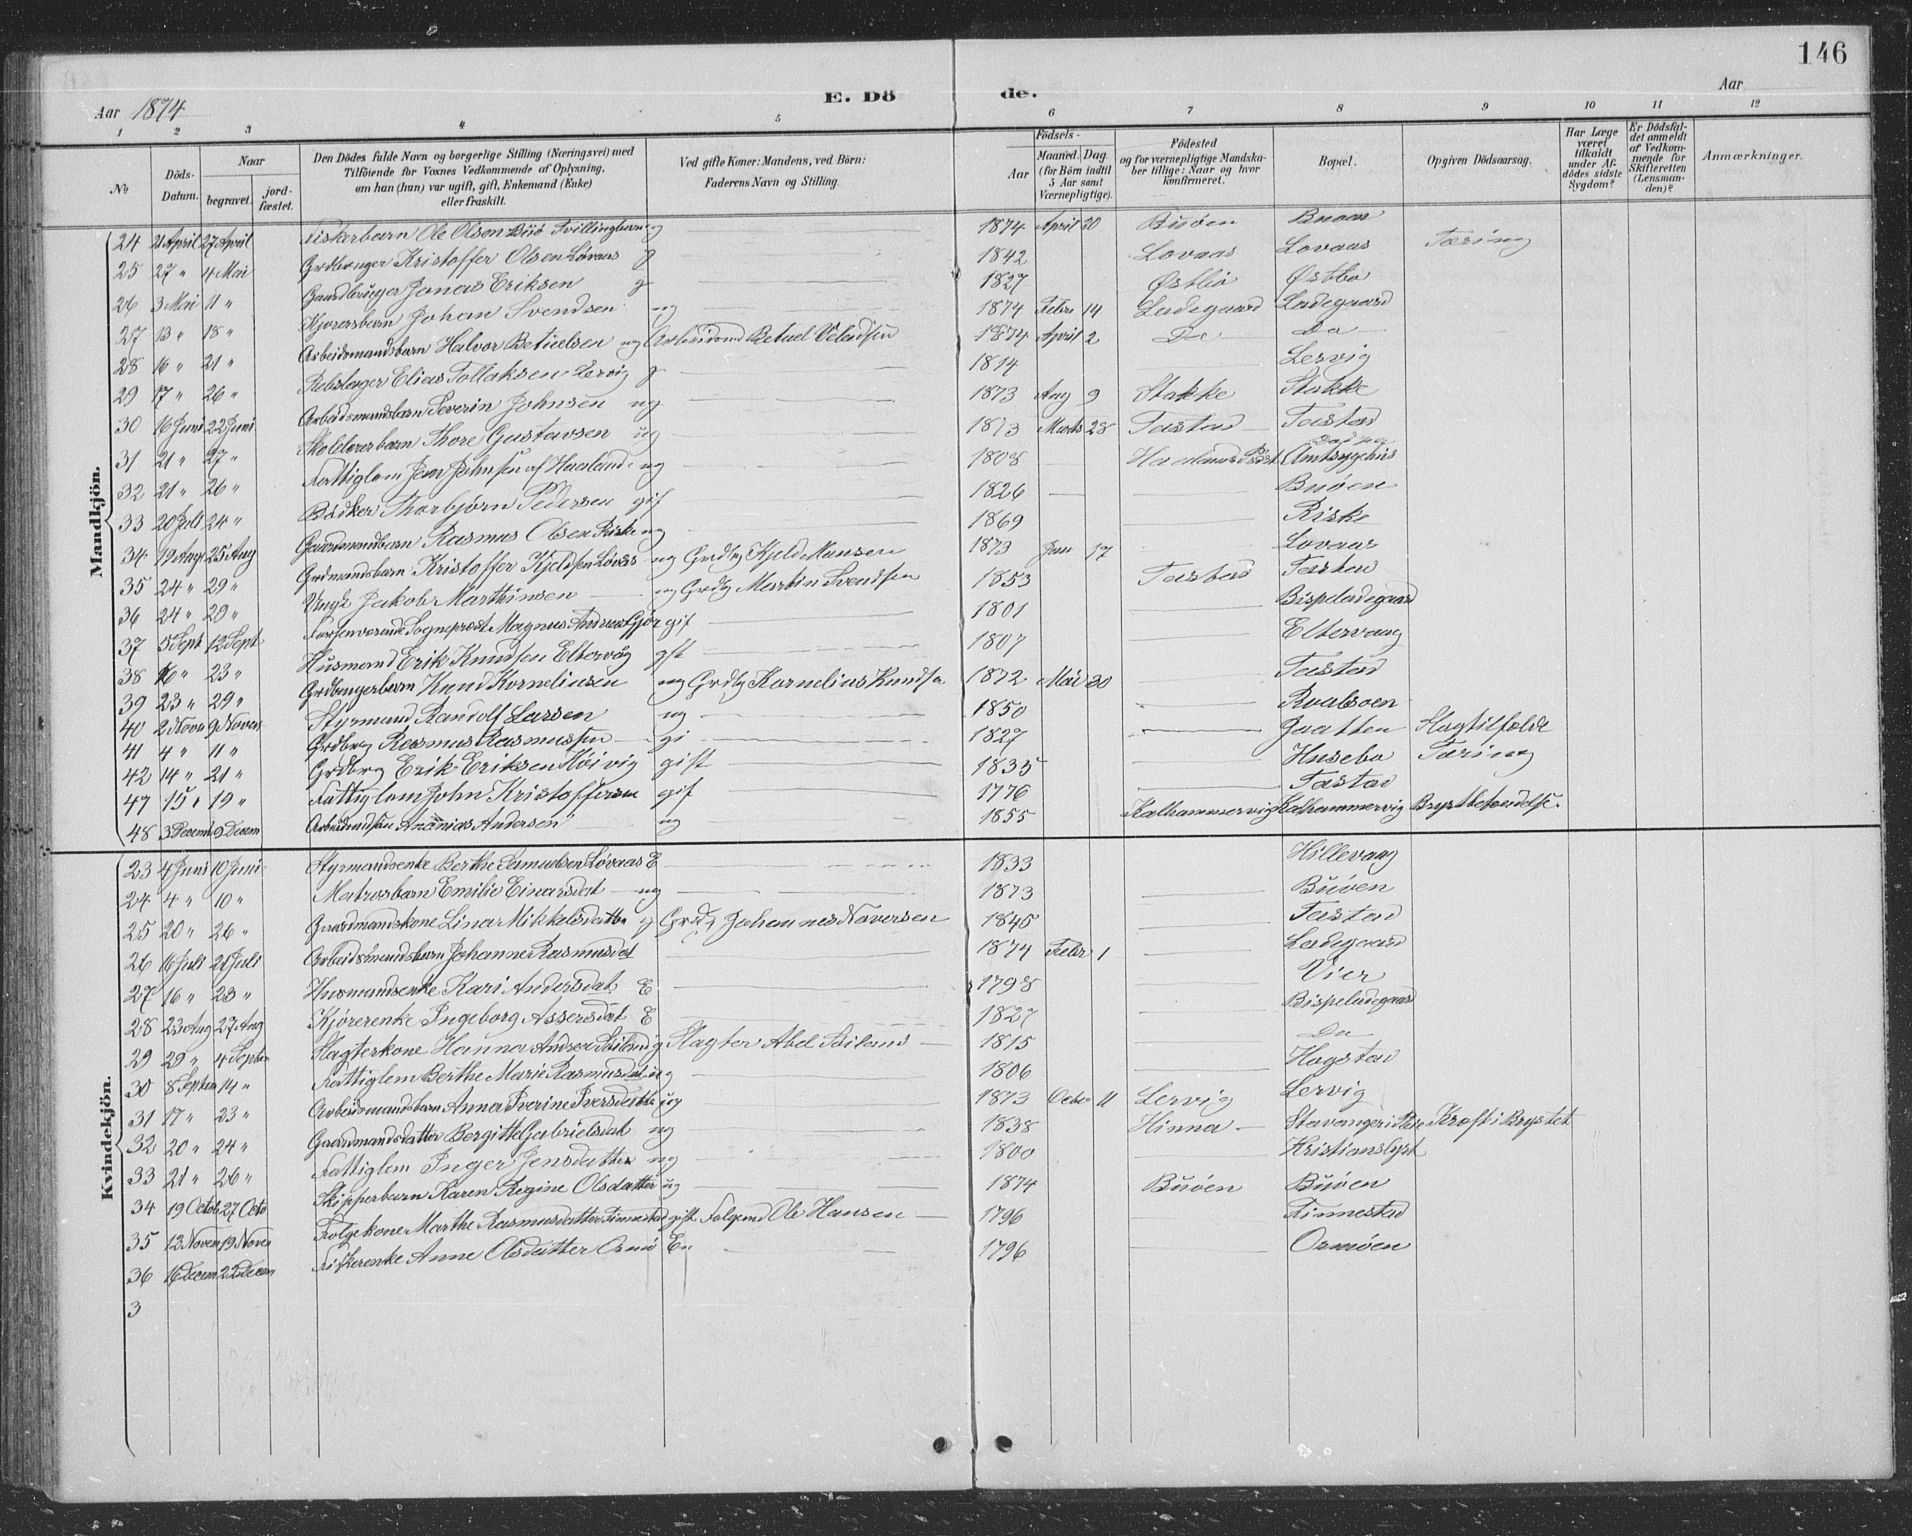 146
Aar 1874
E. Dö de.
Aar
1 2 3 4 5 6 7 8 9 10 11 12
No
Döds-Datum.
Naar begravet. jordfæstet.
Den Dödes fulde Navn og borgerlige Stilling (Næringsvei) med Tilföiende for Voxnes Vedkommende af Oplysning, om han (hun) var ugift, gift, Enkemand (Enke) eller fraskilt.
Ved gifte Koner: Mandens, ved Börn: Faderens Navn og Stilling.
Födsels-
Aar
Maaned. Dag. (for Börn indtil 5 Aar samt Værnepligtige).
Födested og for værnepligtige Mandskaber tillige: Naar og hvor konfirmeret.
Bopæl.
Opgiven Dödsaarsag.
Har Læge været tilkaldt under Afdödes sidste Sygdom?
Er Dödsfaldet anmeldt af Vedkommende for Skifteretten (Lensmanden)?
Anmærkninger.
Mandkjön.
24 21 April 27 April Fiskerbarn Ole Olsen Buø Tvillingbarn ug 1874 April 20 Buøen Buøen
25 27 " 4 Mai Grdbruger Kristoffer Olsen Løvaas g 1842 Lovaas Lovaas Tæring
26 3 Mai 11 " Gaardbruger Jonas Eriksen g 1827 Østbø Østbø
27 13 " 18 " Kjørersbarn Johan Svendsen ug 1874 Febr 14 Ladegaard Ladegaard
28 16 " 21 " Arbeidsmandsbarn Halvor Betuelsen ug Arbeidsmd Betuel Velndsen 1874 April 2 Do Do
29 17 " 26 " Rebslager Elias Tollaksen Lervig g 1814 Lervig
30 16 Juni 22 Juni Arbeidsmandsbarn Severin Johnsen ug 1873 Aug 9 Stokke Stokke
31 21 " 27 " Skolelærerbarn Thore Gustavsen ug 1873 Marts 28 Tastad Tastad
32 21 " 26 " Fattiglem Jens Johnsen af Haaland ug 1808 Haalands Præst Død paa Amtssygehus
33 20 Juli 24 " Bødker Thorbjørn Pedersen gif 1826 Buøen
34 19 Aug 25 Aug Gaardmandbarn Rasmus Olsen Riske ug 1869 Riske
35 24 " 29 " Grdmandsbarn Kristoffer Kjeldsen Lovaas ug Grdbg Kjeld Hansen 1873 Jan 17 Lovaas
36 24 " 29 " Ungk Jakob Marthinsen ug Grdbg Martin Svendsen 1853 Tastad Tastad
37 5 Sept 12 Sept Forhenværende Sogneprest Magnus Andreas gif 1801 Bispeladegaard
38 16 " 23 " Husmand Erik Knudsen Eltervåg gft 1807 Eltervaag
39 23 " 29 " Grdbrugerbarn Knud Kornelinsen ug Grdbg Kornelius Knudsn 1872 Mai 30 Tastad
40 2 Novn 9 Noven Styrmand Randolf Larsen ug 1850 Rvalsoen
41 4 " 11 " Grdbrg Rasmus Rasmussen gi 1827 Jaatten Slagtilfælde
42 14 " 21 " Grdbrg Erik Eriksen Høivig gift 1835 Husebø Tæring
47 15 " 19 " Fattiglem John Kristoffersen gif 1776 Tastad
48 3 Decemb 9 Decem Arbeidmdsøn Ananias Andersen ug 1855 Kalhammervig Kalhammervig Brystbetændelse
Kvindekjön.
23 4 Juni 10 Juni Styrmandsenke Berthe Samuelsen Løvaas E 1833 Hillevaag
24 4 " 10 " Matrosbarn Emilie Einarsdat ug 1873 Buøen
25 20 " 26 " Gaardmandskone Lina Mikkelsdatter g Grdbg Johannes Naversen 1845 Tastad
26 16 Juli 21 Juli Arbeidsmandsbarn Johanne Rasmusdat 1874 Febr 1 Ladegaard
27 16 " 23 " Husmandsenke Kari Andersdat E 1798 Vier
28 23 Aug 27 Aug Kjørerenke Ingeborg Assersdat E 1827 Bispeladegaard
29 29 " 4 Septbr Slagterkone Hanna Andrea Soiland g Slagter Abel Soiland 1815 Do
30 8 Septem 14 " Fattiglem Berthe Marie Rasmusdat ug 1806 Hogstad
31 17 " 23 " Arbeidsmandsbarn Anna Iverine Iversdatter ug 1873 Octo 11 Lervig Lervig
32 20 " 24 " Gaardmandsdatter Bergitte Gabrielsdat ug 1838 Hinna Stavanger Kræft i Brystet
33 21 " 26 " Fattiglem Inger Jensdatter ug 1800 Kristianslyst
34 19 Octob 27 Octo Skipperbarn Karen Regine Olsdatter ug 1874 Buøen Buøen
35 12 Novem 19 Noven Folgekone Marthe Rasmusdatter Finnestad gift Folgemd Ole Hansen 1796 Finnestad
36 16 Decem 22 Decem Fiskerenke Anne Olsdatter Ormø En 1796 Ormøen
3